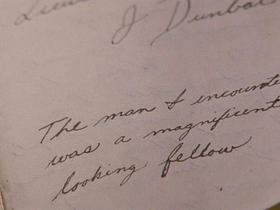 J Dunbar
The man I encounte
was a magnificent
looking fellow